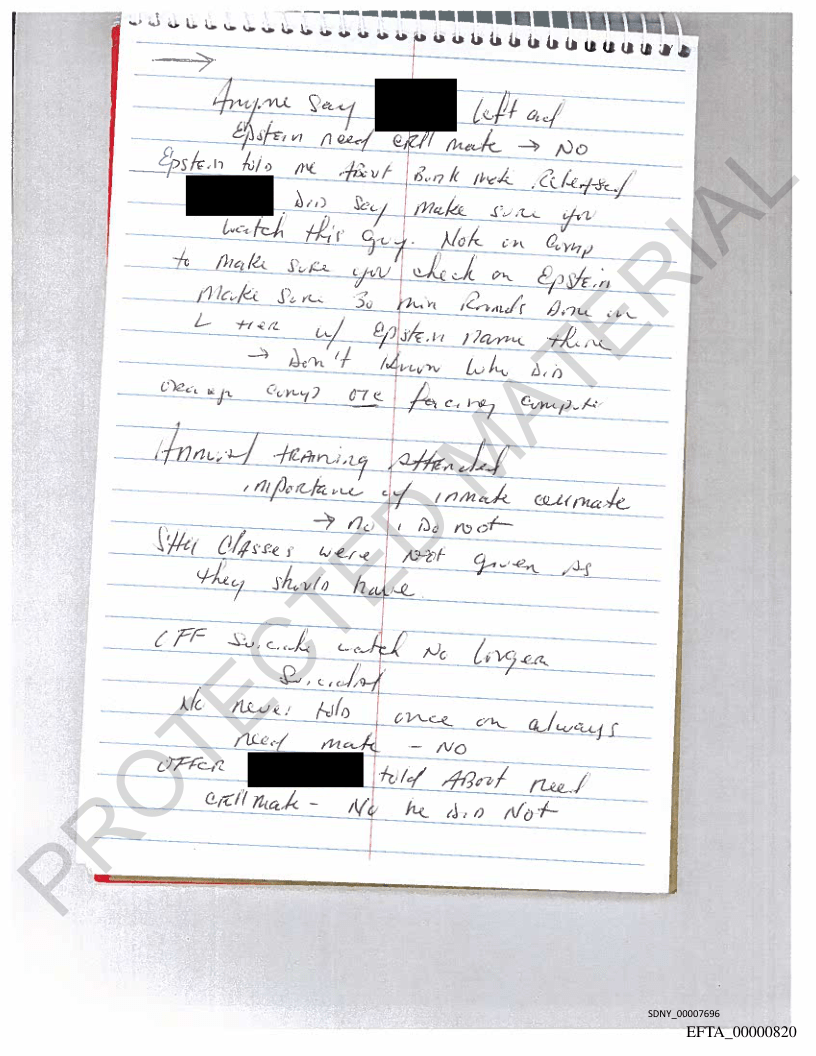 Anyne say left and
Epstein need cell mate → No
Epstein told me About Bunk mate
DiD say make sure you
watch this guy. Note in comp
to make sure you check on Epstein
Make Sure 30 min Rounds Done in
L tier w/ Epstein name there
→ Don't Know who DiD
comp? facing
Annual training Attended
importance of inmate cellmate
→ no i Do not
SHU Classes were not given as
they should have.
OFF Suicide watch No longer
Suicidal
No never told once on always
need mate - NO
told About need
cell mate - No he DiD Not
PROTECTED MATERIAL
SDNY_00007696
EFTA_00000820